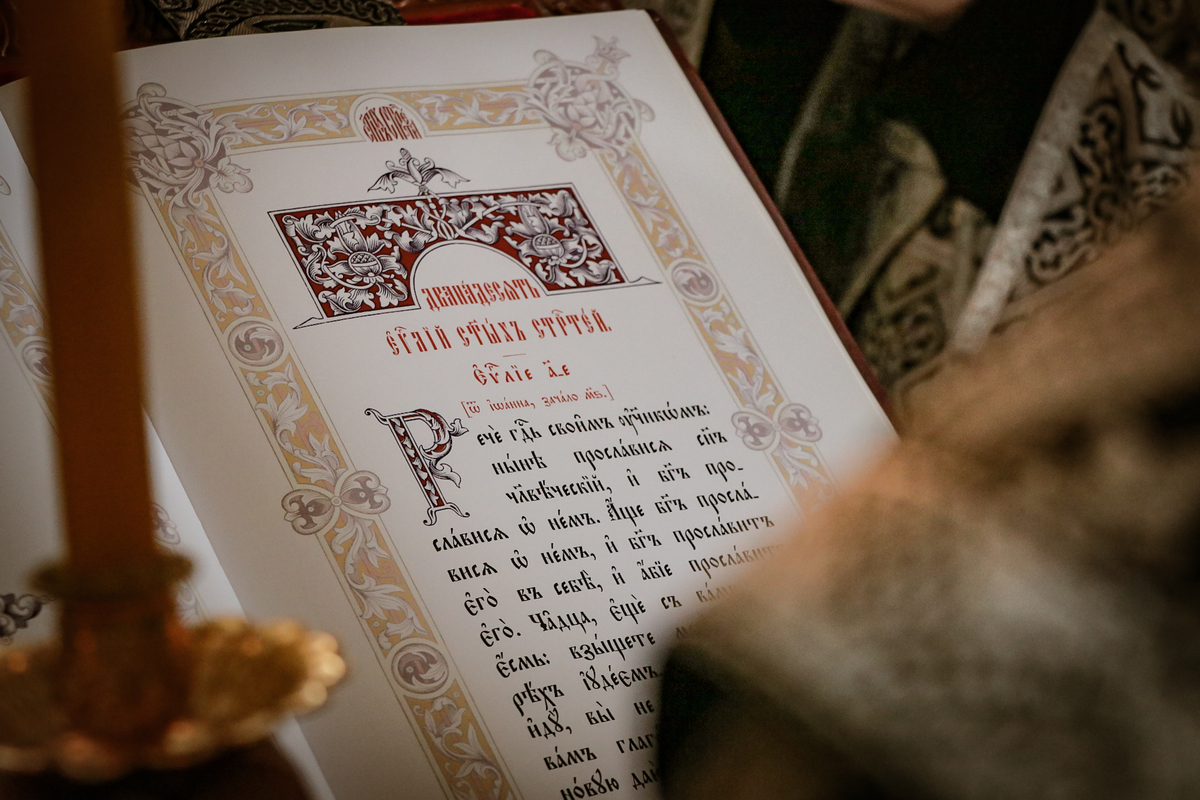 Двана́десѧть
Є҆ѵⷢ҇лїй ст҃ы́хъ стрⷭ҇те́й.
Є҆ѵⷢ҇лїе а҃-е
[Ѿ і҆ѡа́нна, зача́ло м҃ѕ.]
Речѐ гдⷭ҇ь свои̑мъ ᲂу҆чн҃кѡ́мъ:
ны́нѣ просла́висѧ сн҃ъ
чл҃вѣ́ческїй, и҆ бг҃ъ про-
сла́висѧ ѡ҆ не́мъ. А҆́ще бг҃ъ просла́-
висѧ ѡ҆ не́мъ, и҆ бг҃ъ просла́витъ
є҆го̀ въ себѣ̀, и҆ а҆́бїе просла́витъ
є҆го̀. Ча̑дца, є҆щѐ съ ва́ми
є҆́смь: взы́щете
рѣ́хъ і҆ꙋде́ємъ
и҆дꙋ̀, вы̀ не
ва́мъ глаго
но́вꙋю даю̀